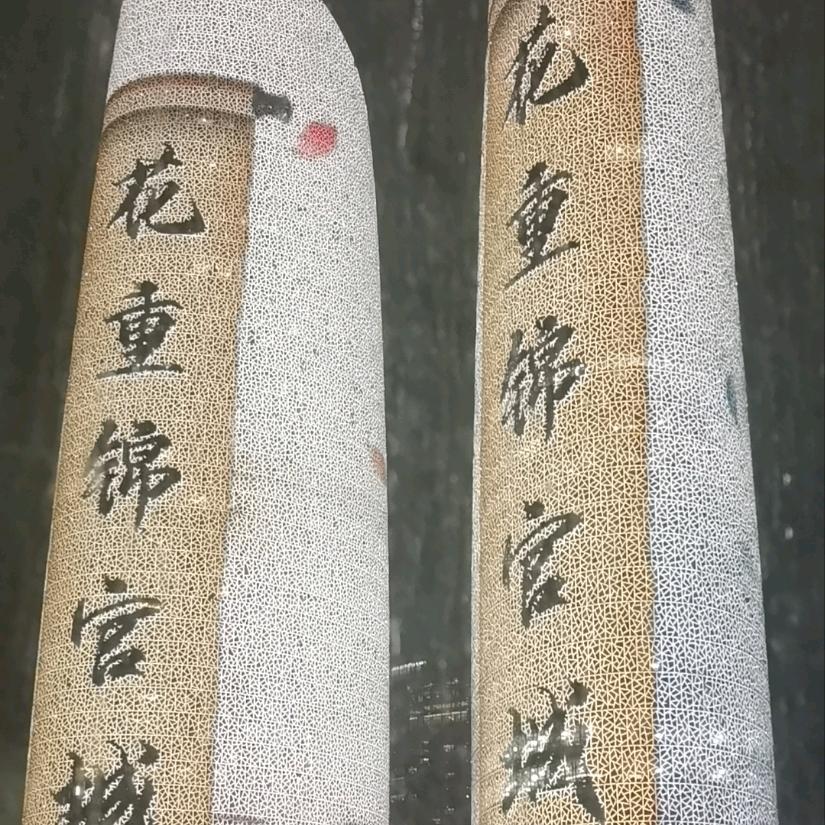 花重锦官城
花重锦官城